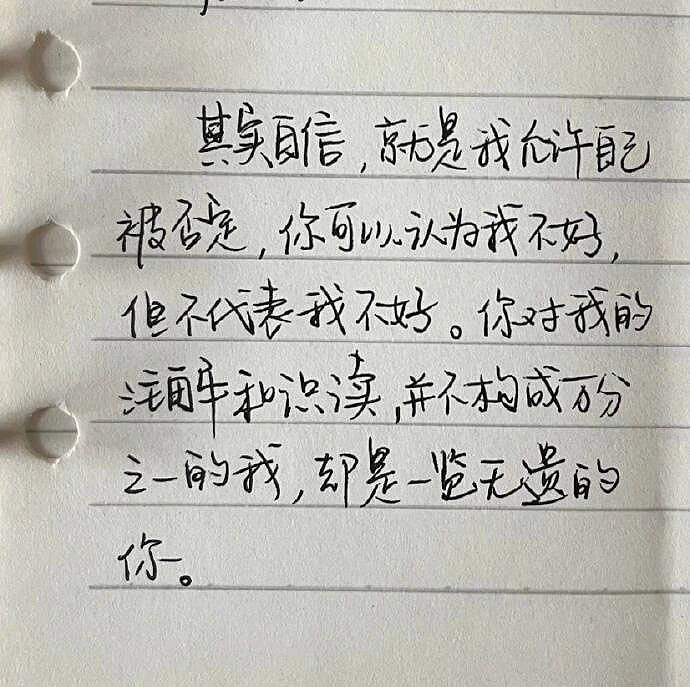 其实自信，就是我允许自己
被否定，你可以认为我不好，
但不代表我不好。你对我的
注解和识读，并不构成万分
之一的我，却是一览无遗的
你。